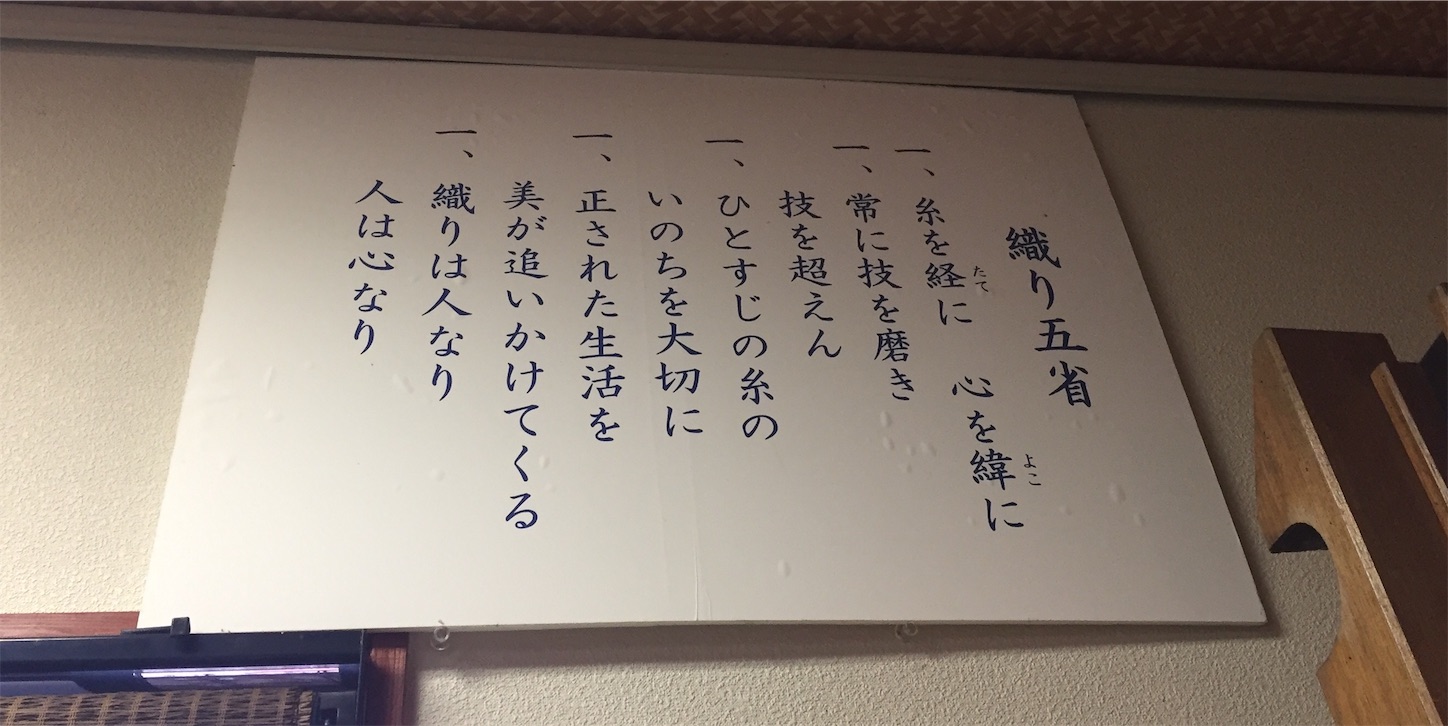 織り五省
一、糸を経に　心を緯に
たて
よこ
一、常に技を磨き
技を超えん
一、ひとすじの糸の
いのちを大切に
一、正された生活を
美が追いかけてくる
一、織りは人なり
人は心なり